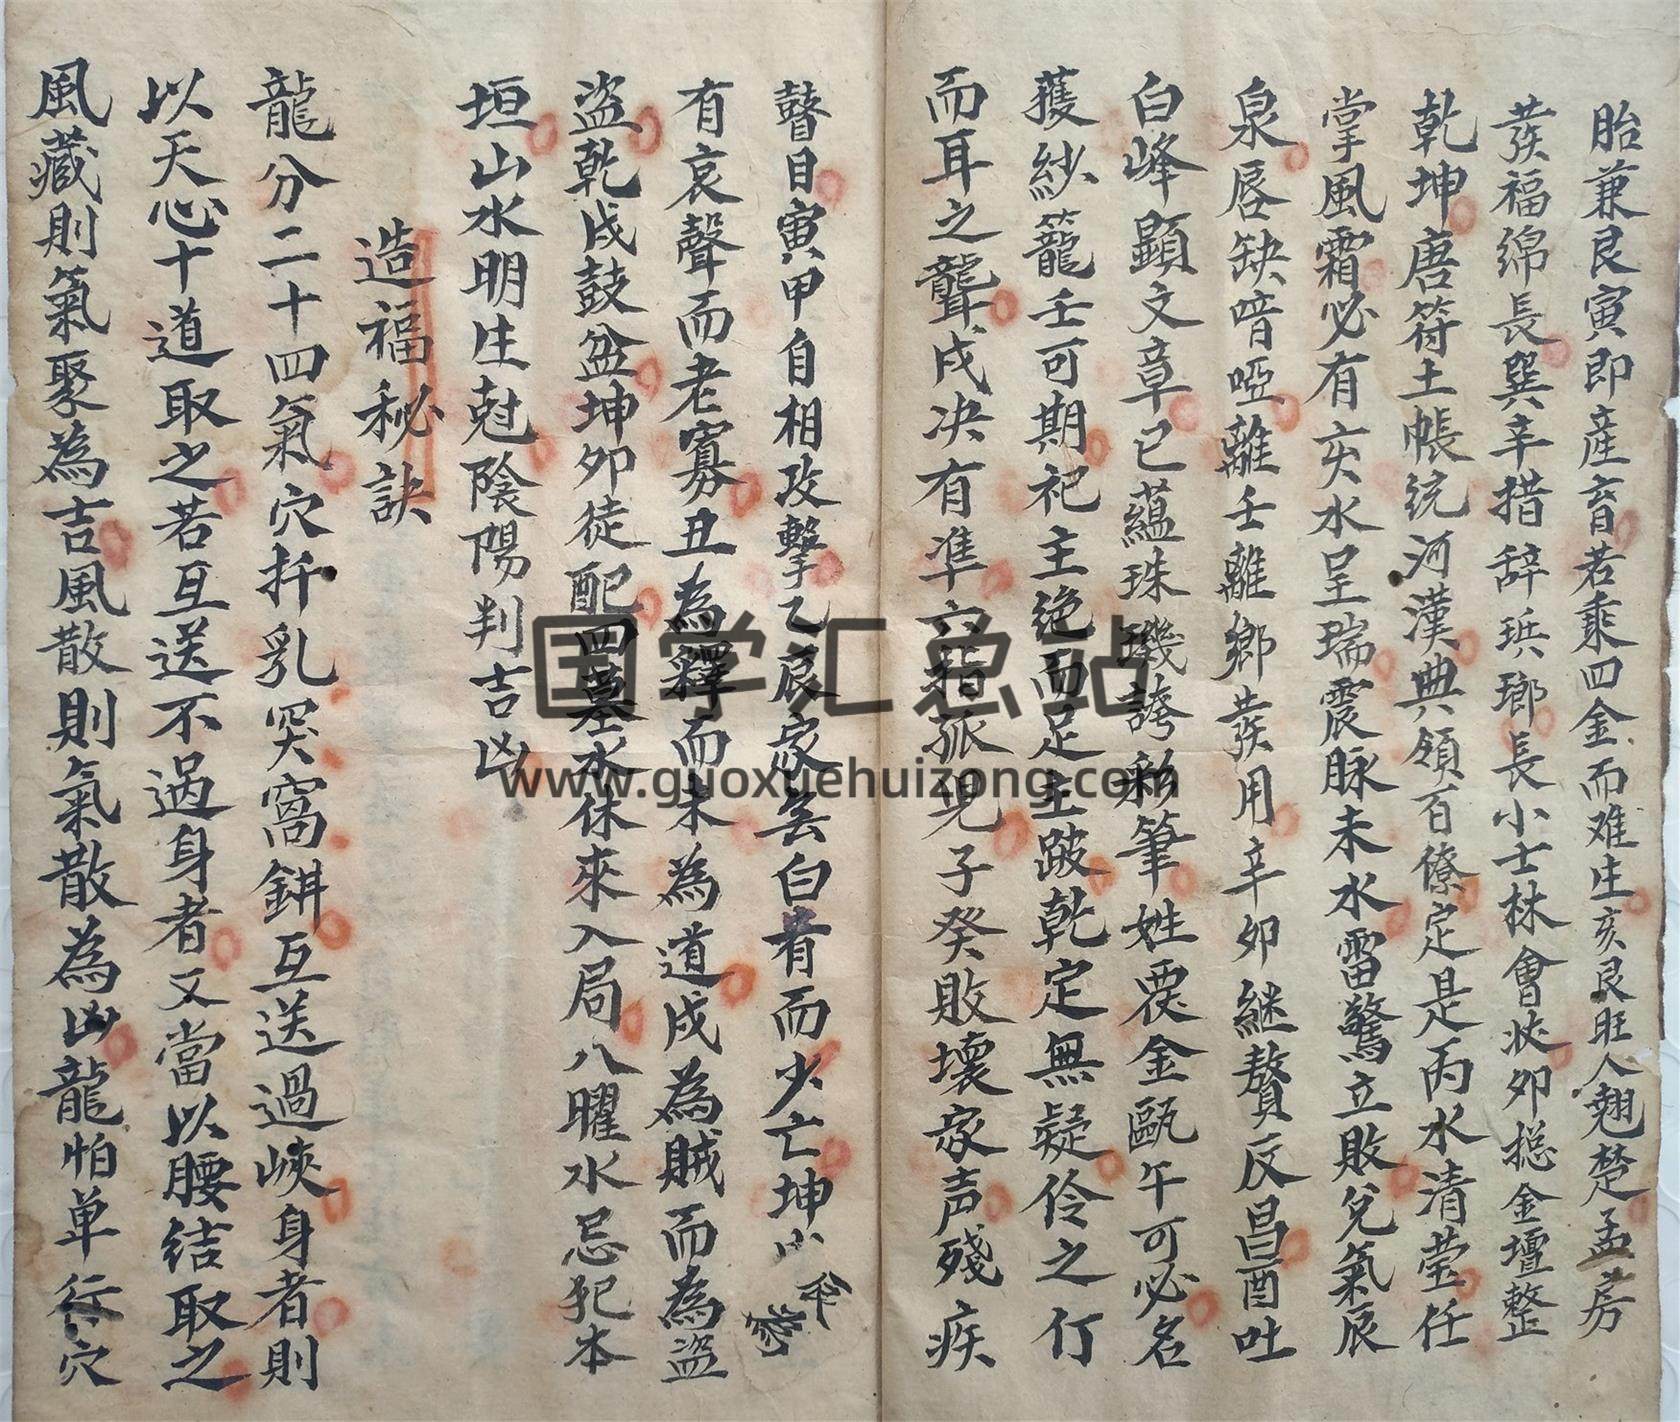 胎兼艮寅即産育若乘四金而难生亥艮旺人翹楚孟房
發福綿長巽辛措辞珙瑯長小士林會状卯搃金壇整
乾坤唐符土帳统河漢典領百僚定是丙水清莹任
掌風霜必有亥水呈瑞震脉未水雷驚立敗兌氣辰
泉唇缺喑啞離壬離鄉發用辛卯継贅反昌酉吐
白峰顯文章已蘊珠璣誇彩筆姓震金甌午可必名
蒦紗籠壬可期祀主绝而足主跛乾定無疑伶之仃
而耳之聾戌决有准六指孤児子癸敗壞家声殘疾
瞽目寅甲自相攻擊乙辰家無白眚而少亡坤山
有哀聲而老寡丑為釋而未為道戌為賊而為盜
盜乾戌鼓盆坤卯徒配四墓水休來入局八曜水忌犯本
垣山水明生尅陰陽判吉凶
造福秘訣
龍分二十四氣穴扦乳突窩鉗互送過峽身者則
以天心十道取之若互送不過身者又當以腰结取之
風藏則氣聚為吉風散則氣散為凶龍怕单行穴
国学汇总站
www.guoxuehuizong.com